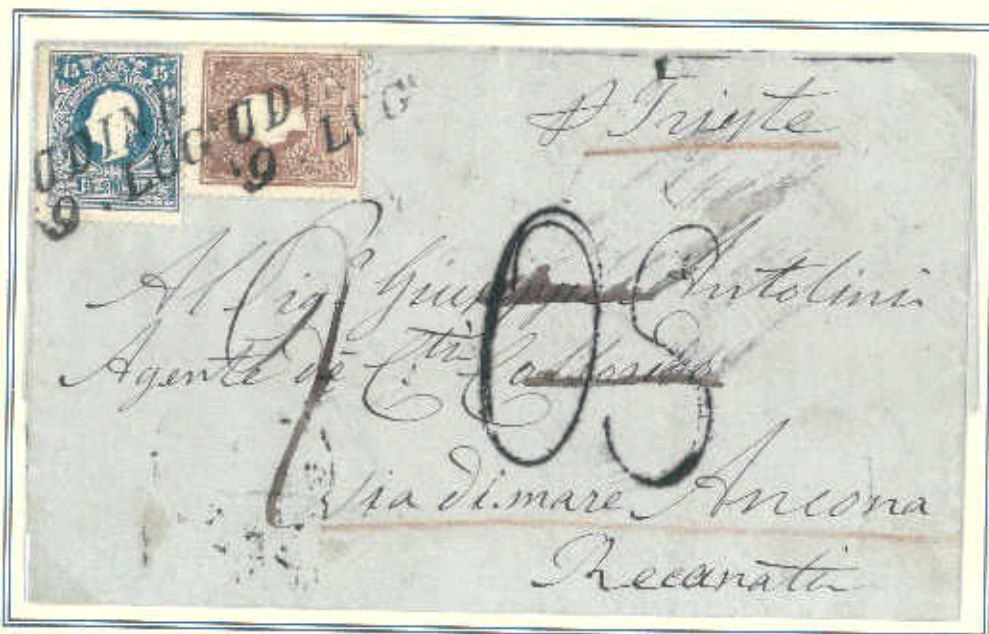 15 15
UDINE
9. LUG.
UDINE
9 LUG.
p Trieste
Al Sigr Giuseppe Antolini
Agente de C.tri
Via di mare Ancona
Recanati